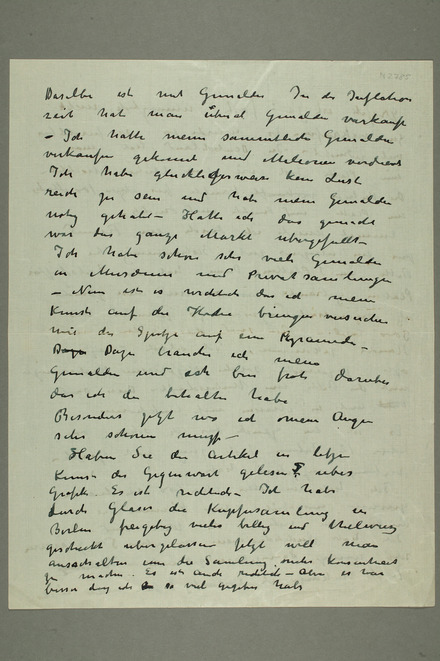 Dasselbe ist mit Gemälden In der Inflation
zeit hat man überal Gemälden verkauft
– Ich hatte meine sammtliche Gemälden
verkaufen gekonnt und Melionen verdient
Ich habe glucklicherweise kein Lust
reich zu sein und habe mein Gemälden
notig gehabt – Hätte ich das gemacht
war das ganze Markt ubergefullt –
Ich habe schon sehr viele Gemälden
in Museums und Privat samlungen
– Nun ist es wichtich das ich mein
Kunst auf die Hohe bringen versuchen
wie die Spitze auf ein Pyramide –
Dazu brauche ich meine
Gemälden und ich bin froh daruber
das ich die behalten habe
Besonders jetzt wo ich meine Augen
sehr schonen muss –
Haben Sie die Artikel in letzte
Kunst der Gegenwart gelesen? uber
Grafik. Es ist richtich – Ich habe
durch Glaser die Kupfersamlung in
Berlin freigebig vieles billig und
geschenkt ubergelassen jetzt will man
um die Samlung mehr
zu machen. Es ist auch richtich – aber es war
besser das ich so viel gegeben habe